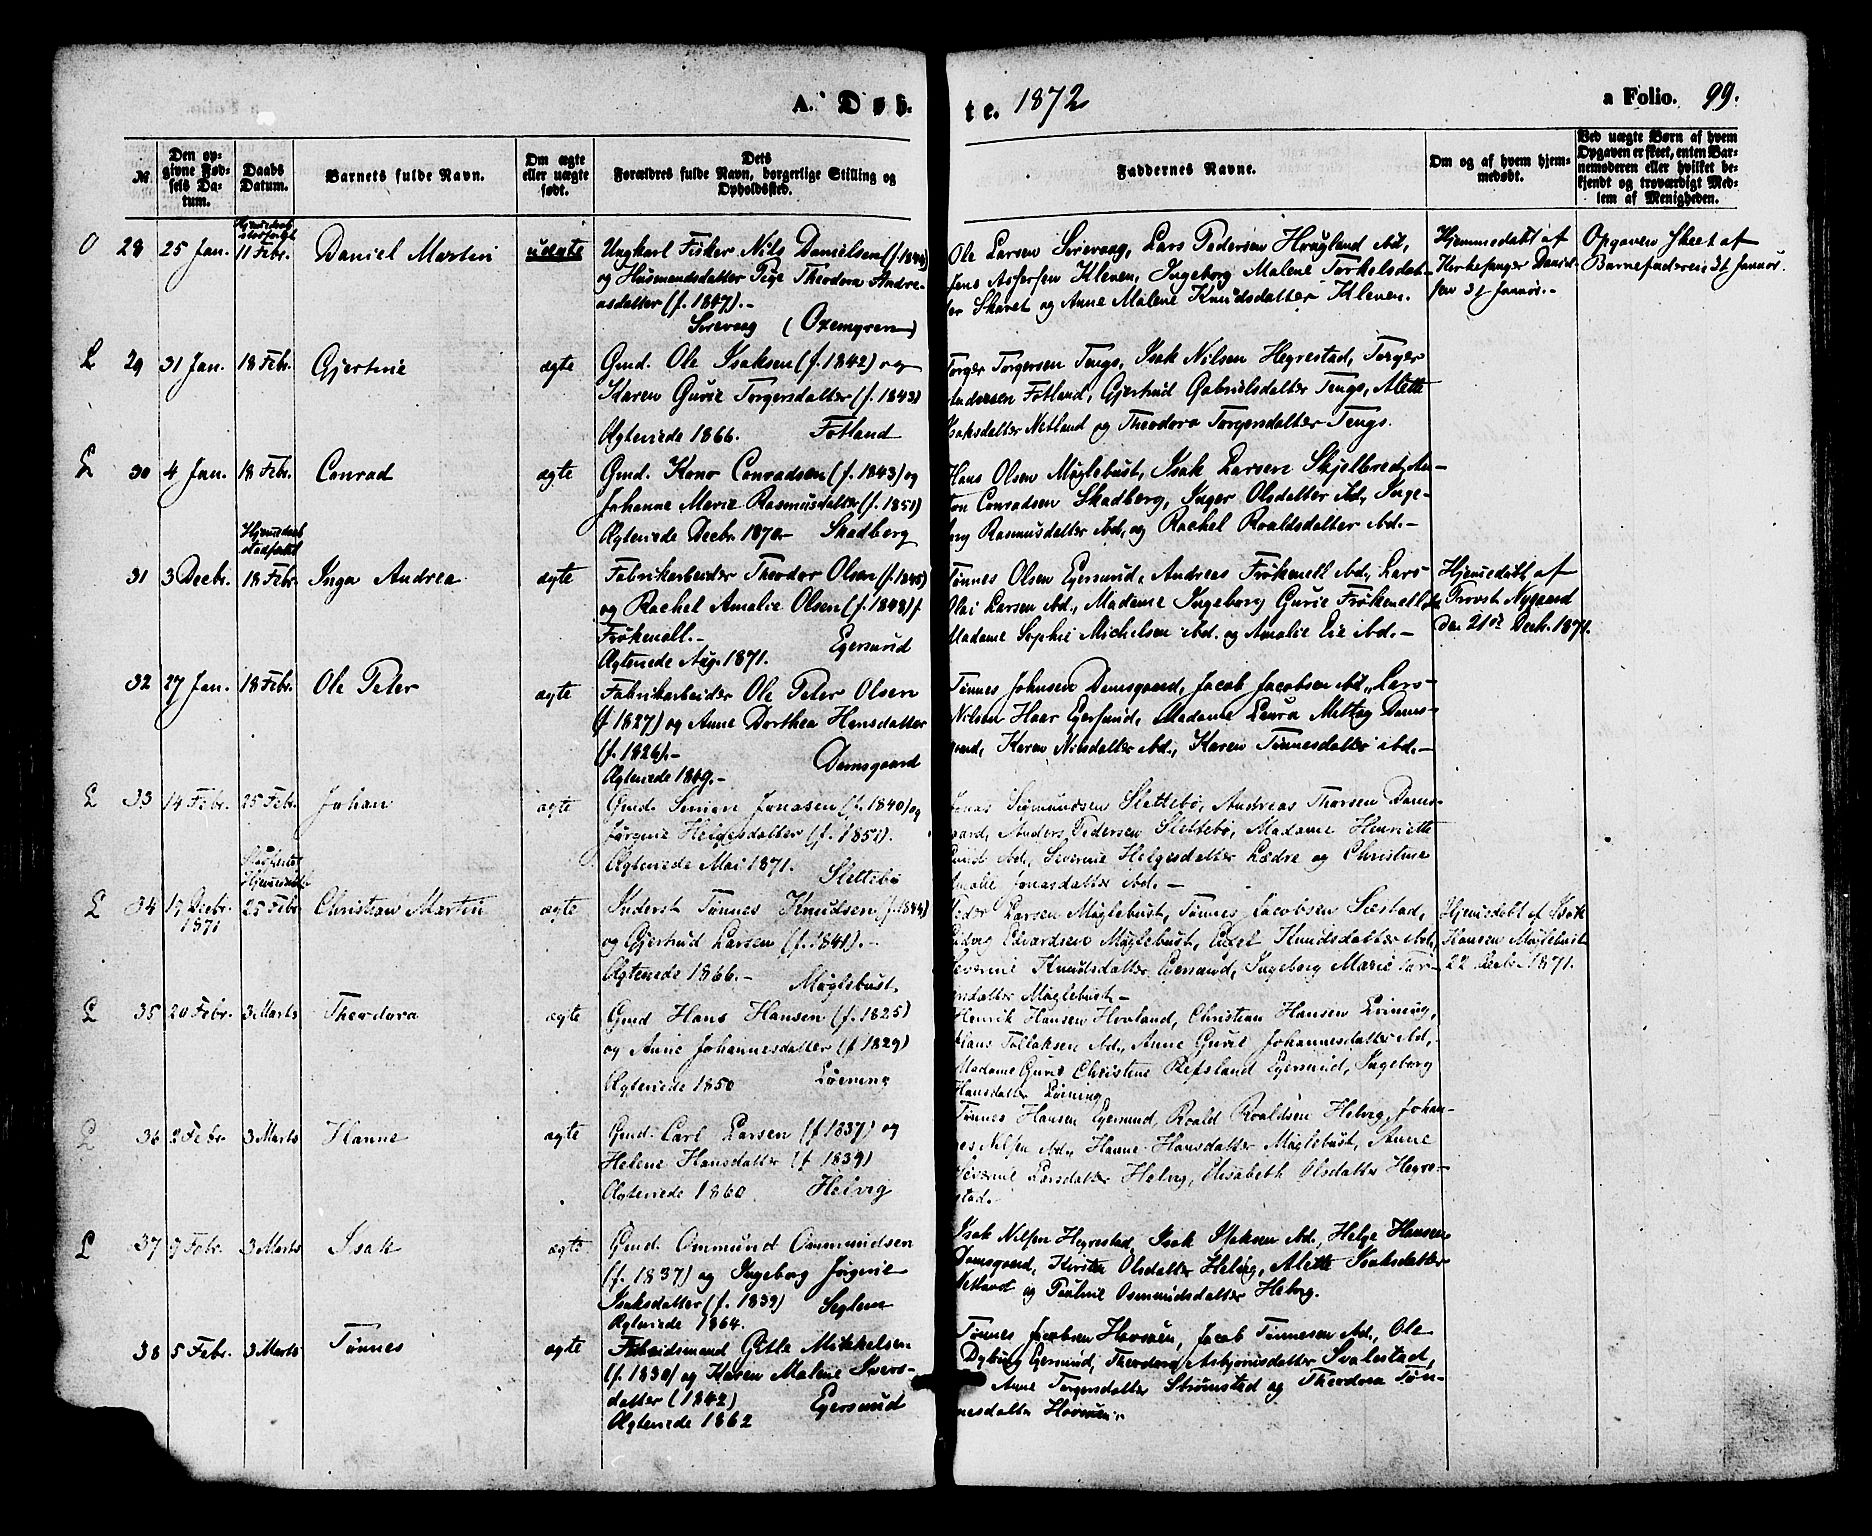 A. Døb-
te. 1872
a Folio. 99.
№
Den op-
givne Fød-
sels Da-
tum.
Daabs
Datum.
Barnets fulde Navn.
Om ægte
eller uægte
født.
Dets
Forældres fulde Navn, borgerlige Stilling og
Opholdssted.
Faddernes Navne.
Om og af hvem hjem-
medøbt.
Ved uægte Børn af hvem
Opgaven er skeet, enten Bar-
nemoderen eller hvilket be-
kjendt og troværdigt Med-
lem af Menigheden.
O 28 25 Jan. 11 Febr. Daniel Martin uægte
Ungkarl Fisker Nils Danielsen (f. 1844)
og Husmandsdatter Theodora Andre-
asdatter (f. 1847).-
Sirevaag
Ole Larsen Sirevaag, Lars Pedersen Hougland ibd,
Jens Assersen Kleven, Ingeborg Malene Torkelsdat-
ter Skaret og Anne Malene Knudsdatter Kleven.
Hjemmedøbt af
Kirkesanger Daniel-
sen 31 Januar.-
Opgaven skeet af
Barnefaderen 31 Januar.
L 29 31 Jan. 18 Febr. Gjertine ægte
Gmd. Ole Isaksen (f. 1842) og
Karen Gurie Torgersdatter (f. 1843)
Ægteviede 1866. Fotland
Torger Torgersen Tengs, Isak Nilsen Hegrestad, Torger
Andersen Fotland, Gjertrud Gabrielsdatter Tengs, Alette
Isaksdatter Netland og Theodora Torgersdatter Tengs.
L 30 4 Jan. 18 Febr. Conrad ægte
Gmd. Konr Conradsen (f. 1843) og
Johanne Marie Rasmusdatter (f. 1851)
Ægteviede Decbr. 1870.- Skadberg
Hans Olsen Møglebust, Isak Larsen Skjelbred, An-
ton Conradsen Skadberg, Inger Olsdatter ibd, Inge-
borg Rasmusdatter ibd, og Rachel Roaldsdatter ibd.-
Hjemmedaab
stadfæstet
31 3 Decbr. 18 Febr. Inga Andrea ægte
Fabrikarbeider Theodor Olsen (f. 1845)
og Rachel Amalie Olsen (f. 1848) f.
Frøkenell.-
Ægteviede Aug. 1871. Egersund
Tønnes Olsen Egersund, Andreas Frøkenell ibd, Lars
Olai Larsen ibd, Madame Ingeborg Gurie Frøkenell ibd
Madame Sophie Michelsen ibd. og Amalie Eie ibd.-
Hjemedøbt af
Provst Nygaard
den 21de Decb. 1871.
32 27 Jan. 18 Febr. Ole Peter ægte
Fabrikarbeider Ole Peter Olsen
(f 1827) og Anne Dorthea Hansdatter
(f. 1826).-
Ægteviede 1849.- Damsgaard
Tønnes Johnsen Damsgaard, Jacob Jacobsen ibd, Lars
Nilsen Haar Egersund, Madame Laura Dams-
gaard, Karen Nilsdatter ibd., Karen Tønnesdatter ibd.-
L 33 14 Febr. 25 Febr. Johan ægte
Gmd. Simon Jonasen (f. 1840) og
Jørgine Helgesdatter (f. 1851).
Ægteviede Mai 1871. Slettebø
Jonas Sigmundsen Slettebø, Andreas Thorsen Dams-
gaard, Anders Pedersen Slettebø, Madame Henriette
ibd., Severine Helgesdatter Lædre og Christine
Amalie Jonasdatter ibd.-
L 34 19 Decbr. 1871 25 Febr. Christian Martin ægte
Inderst Tønnes Knudsen (f. 1844)
og Gjertrud Larsen (f. 1841).-
Ægteviede 1866.- Møglebust.
Peder Larsen Møglebust, Tønnes Jacobsen Sæstad,
Ludvig Edvardsen Møglebust, Knudsdatter ibd,
Severine Knudsdatter Egersund, Ingeborg Marie Tor-
gersdatter Møglebust.-
Hjemedøbt af Isak
Hansen Møglebust
22 Decbr. 1871.
L 35 20 Febr. 3 Marts Theodora ægte
Gmd Hans Hansen (f. 1825)
og Anne Johannesdatter (f. 1829)
Ægteviede 1850 Løening
Henrik Hansen Hovland, Christian Hansen Løining,
Hans Tollaksen ibd., Anne Gurie Johannesdatter ibd,
Madame Gurie Christine Refsland Egersund, Ingeborg
Hansdatter Løining
L 36 2 Febr 3 Marts Hanne ægte
Gmd. Carl Larsen (f 1837) og
Helene Hansdatter (f 1839)
Ægteviede 1860. Helvig
Tønnes Hansen Egersund, Roald Roaldsen Helvig, Johan-
nes Nilsen ibd., Hanne Hansdatter Møglebust, Anne
Severine Larsdatter Helvig, Elisabeth Olsdatter Hegre-
stad.
L 37 9 Febr. 3 Marts Isak ægte
Gmd. Ommund Ommundsen
(f. 1837) og Ingeborg Jørgine
Isaksdatter (f. 1839) Seglem
Ægteviede 1864.
Isak Nilsen Hegrestad, Isak Isaksen ibd, Helge Hansen
Damsgaard, Kirsten Olsdatter Helvig, Alette Isaksdatter
Netland og Pauline Osmundsdatter Helvig.
38 5 Febr. 3 Marts Tønnes ægte
Arbeidsmand Gitle Mikkelsen
(f. 1830) og Karen Malene Ivers-
datter (1842)
Ægteviede 1862 Egersund
Tønnes Jacobsen Hovsøen, Jacob Tønnesen ibd, Ole
Dyburg Egersund, Theodora Asbjønsdatter Svalestad,
Anne Torgersdatter Strømsted og Theodora Tøn-
nesdatter Hovsøen.